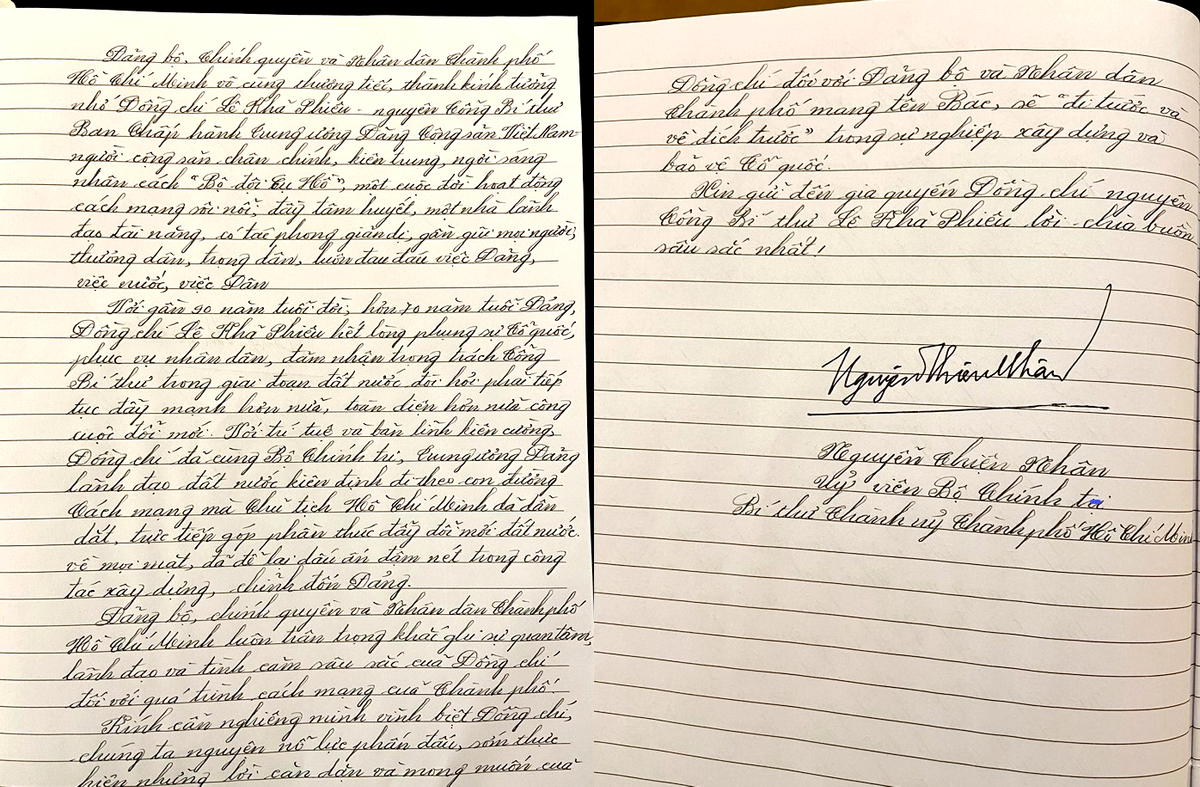 Đảng bộ, Chính quyền và Nhân dân Thành phố
Hồ Chí Minh vô cùng thương tiếc, thành kính tưởng
nhớ Đồng chí Lê Khả Phiêu - nguyên Tổng Bí thư
Ban Chấp hành Trung ương Đảng Cộng sản Việt Nam-
người cộng sản chân chính, kiên trung, ngời sáng
nhân cách "Bộ đội Cụ Hồ", một cuộc đời hoạt động
cách mạng sôi nổi, đầy tâm huyết, một nhà lãnh
đạo tài năng, có tác phong giản dị, gần gũi mọi người,
thương dân, trọng dân, luôn đau đáu việc Đảng,
việc nước, việc Dân
Với gần 90 năm tuổi đời, hơn 70 năm tuổi Đảng,
Đồng chí Lê Khả Phiêu hết lòng phụng sự Tổ quốc,
phục vụ nhân dân, đảm nhận trọng trách Tổng
Bí thư trong giai đoạn đất nước đòi hỏi phải tiếp
tục đẩy mạnh hơn nữa, toàn diện hơn nữa công
cuộc đổi mới. Với trí tuệ và bản lĩnh kiên cường,
Đồng chí đã cùng Bộ Chính trị, Trung ương Đảng
lãnh đạo đất nước kiên định đi theo con đường
Cách mạng mà Chủ tịch Hồ Chí Minh đã dẫn
dắt, trực tiếp góp phần thúc đẩy đổi mới đất nước
về mọi mặt, đã để lại dấu ấn đậm nét trong công
tác xây dựng, chỉnh đốn Đảng.
Đảng bộ, chính quyền và Nhân dân Thành phố
Hồ Chí Minh luôn trân trọng khắc ghi sự quan tâm,
lãnh đạo và tình cảm sâu sắc của Đồng chí
đối với quá trình cách mạng của Thành phố.
Kính cẩn nghiêng mình vĩnh biệt Đồng chí,
chúng ta nguyện nỗ lực phấn đấu, sớm thực
hiện những lời căn dặn và mong muốn của
Đồng chí đối với Đảng bộ và Nhân dân
Thành phố mang tên Bác, sẽ "đi trước và
về đích trước" trong sự nghiệp xây dựng và
bảo vệ Tổ quốc.
Xin gửi đến gia quyến Đồng chí nguyên
Tổng Bí thư Lê Khả Phiêu lời chia buồn
sâu sắc nhất!
Nguyễn Thiện Nhân
Nguyễn Thiện Nhân
Uỷ viên Bộ Chính trị
Bí thư Thành uỷ Thành phố Hồ Chí Minh